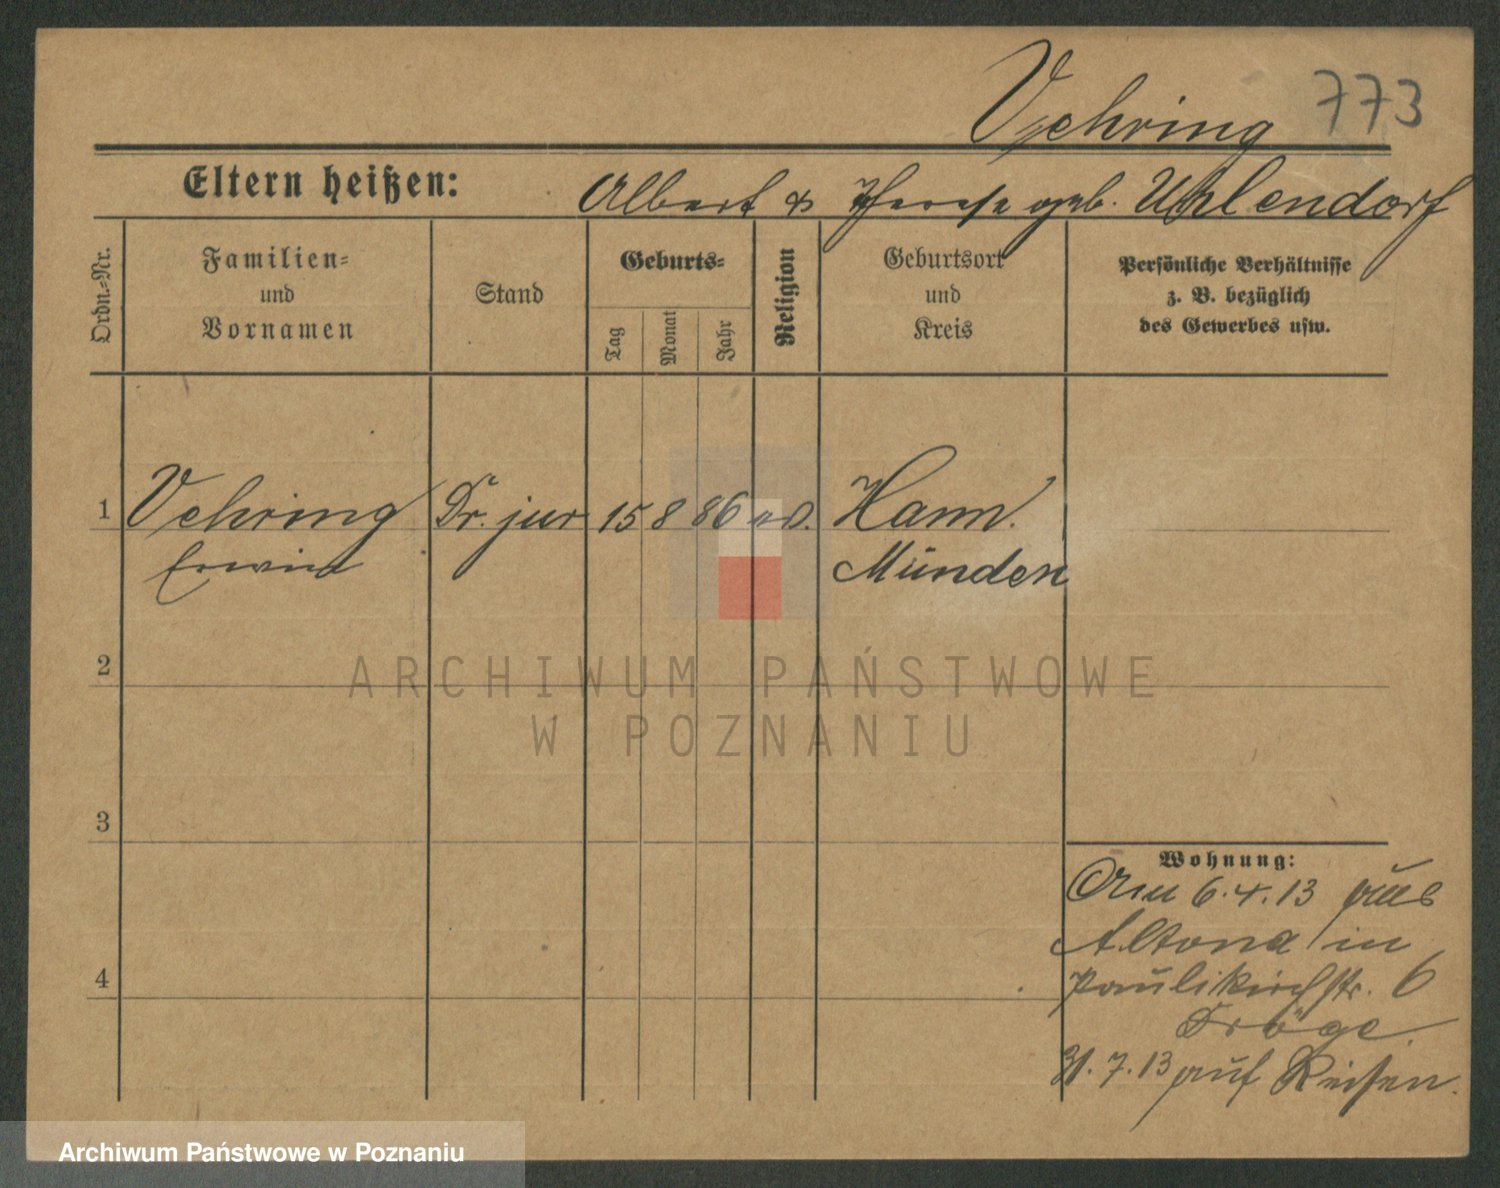 Vehring 773
Eltern heißen: Albert & Therese geb. Uhlendorf
Ordn.-Nr.
Familien-
und
Vornamen
Stand
Geburts-
Tag
Monat
Jahr
Religion
Geburtsort
und
Kreis
Persönliche Verhältnisse
z. B. bezüglich
des Gewerbes usw.
1 Vehring Dr. jur 15 8 86 Hann.
Erwin Münden
2
ARCHIWUM PAŃSTWOWE
W POZNANIU
3
Wohnung:
Am 6.4.13 aus
Altona in
4
Paulikirchstr. 6
Dröge
31.7.13 auf Reisen.
Archiwum Państwowe w Poznaniu